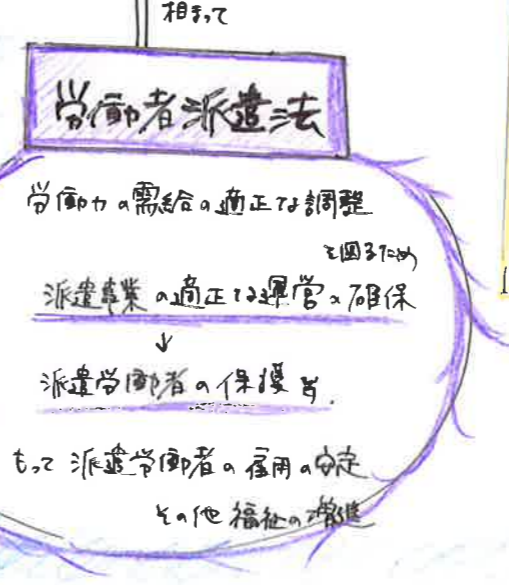 相まって
労働者派遣法
労働力の需給の適正な調整
を図るため
派遣事業の適正な運営の確保
↓
派遣労働者の保護等
もって 派遣労働者の雇用の安定
その他 福祉の増進